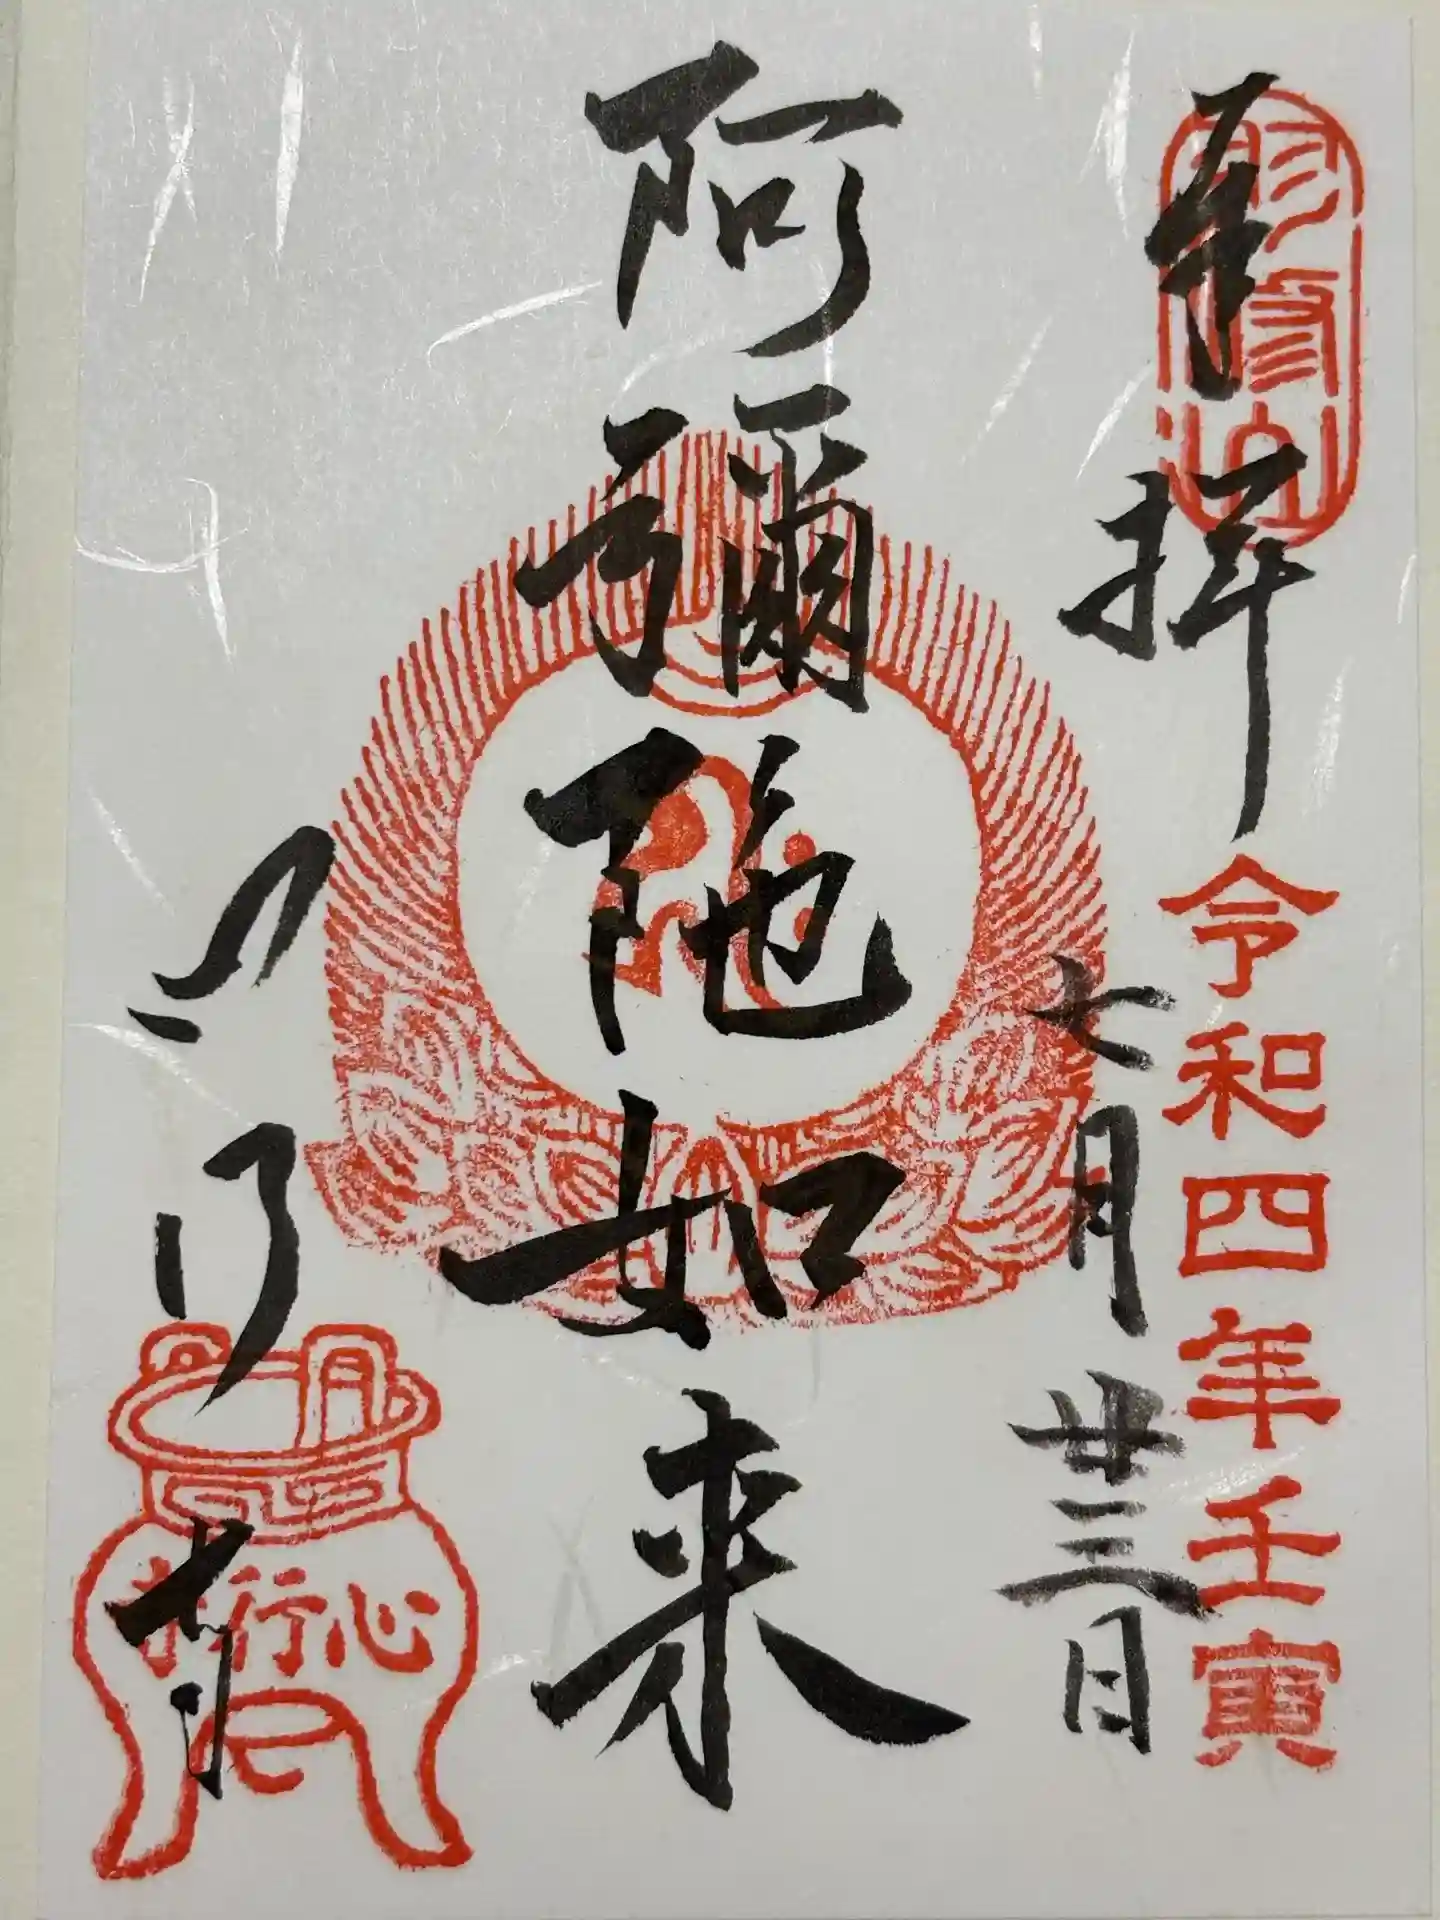 奉拝
令和四年壬寅
七月廿三日
阿彌陁如来
心行寺
心行寺